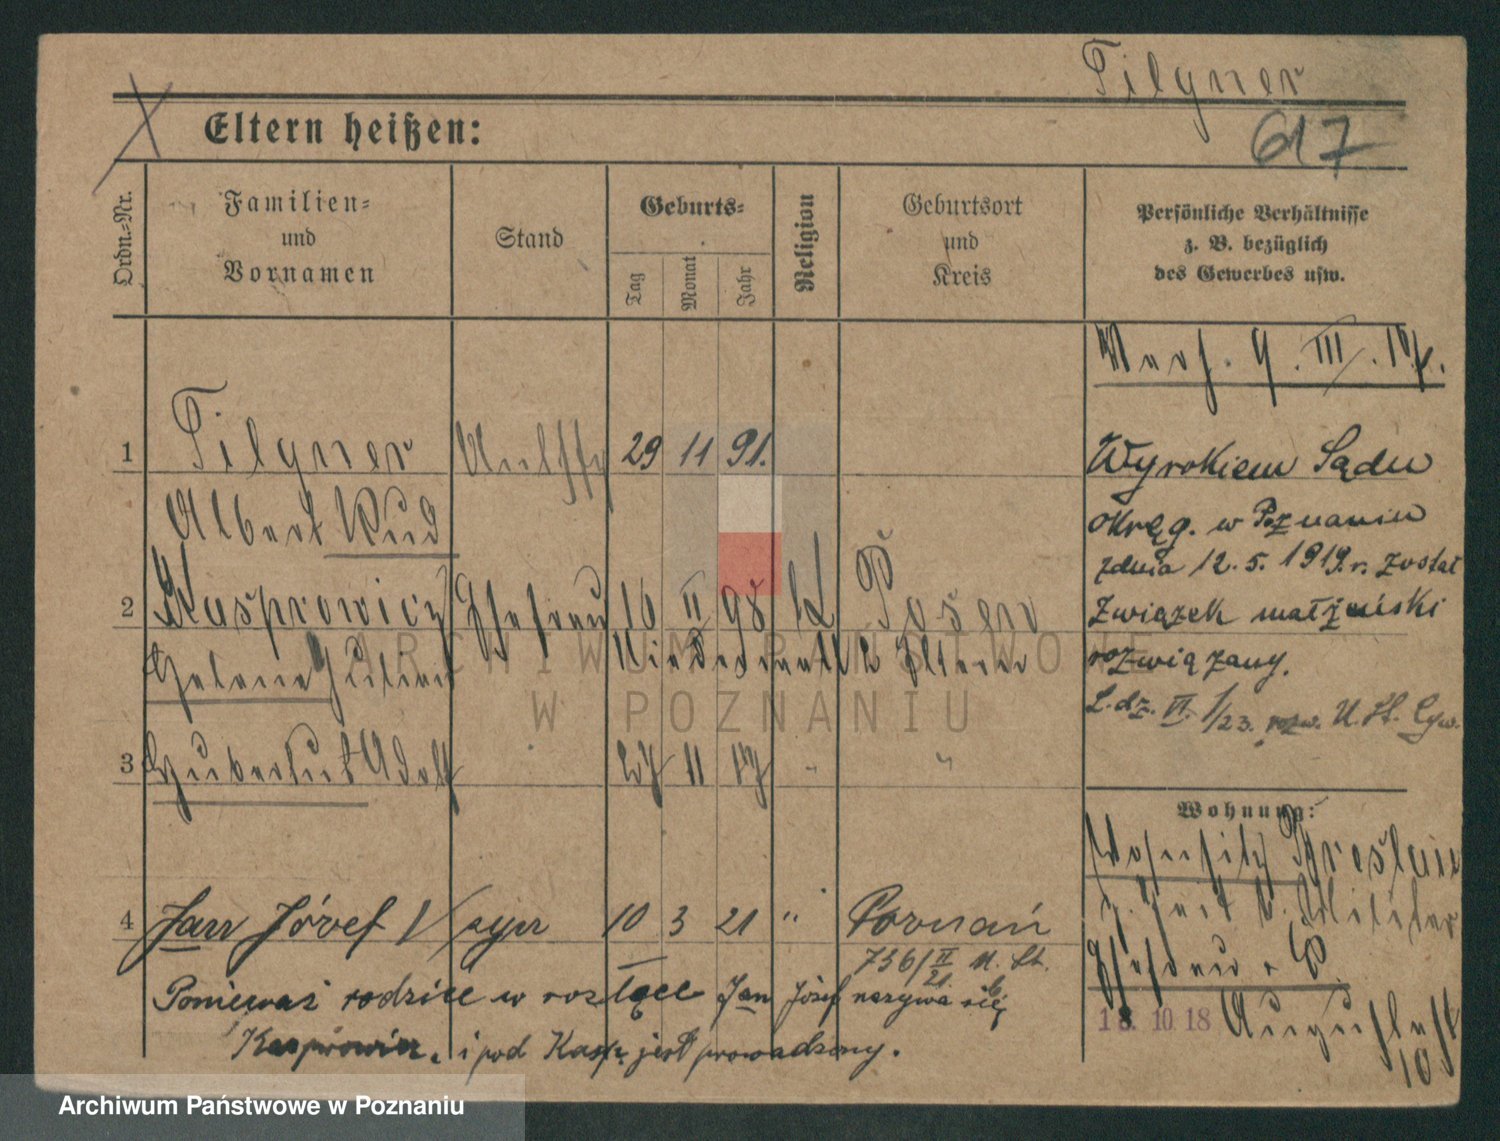 Pilgner
617
Eltern heißen:
Ordn.-Nr.
Familien-
und
Vornamen
Stand
Geburts-
Tag
Monat
Jahr
Religion
Geburtsort
und
Kreis
Persönliche Verhältnisse
z. B. bezüglich
des Gewerbes usw.
1 Pilgner 29 11 91.
Albert
2 Kasprowicz Ehefrau 16 II 98 K Posen
Helene
3 Hubertus Adolf 11 17 " "
4 Jan Józef syn 10 3 21 " Poznań
736/II 21 U. St.
Ponieważ rodzice w rozłące Jan Józef nazywa się
Kasprowicz. i pod Kasp. jest prowadzony.
Verh. 9. III.
Wyrokiem Sądu
Okręg. w Poznaniu
zdnia 12. 5. 1919. r. został
związek małżeński
rozwiązany.
L. dz. VI. 1/23. rozw. U. St.
Wohnung:
Wohnsitz Breslau
z. Zeit b. Militär
Ehefrau
18. 10. 18 Auguststr
10
ARCHIWUM PAŃSTWOWE
W POZNANIU
Archiwum Państwowe w Poznaniu